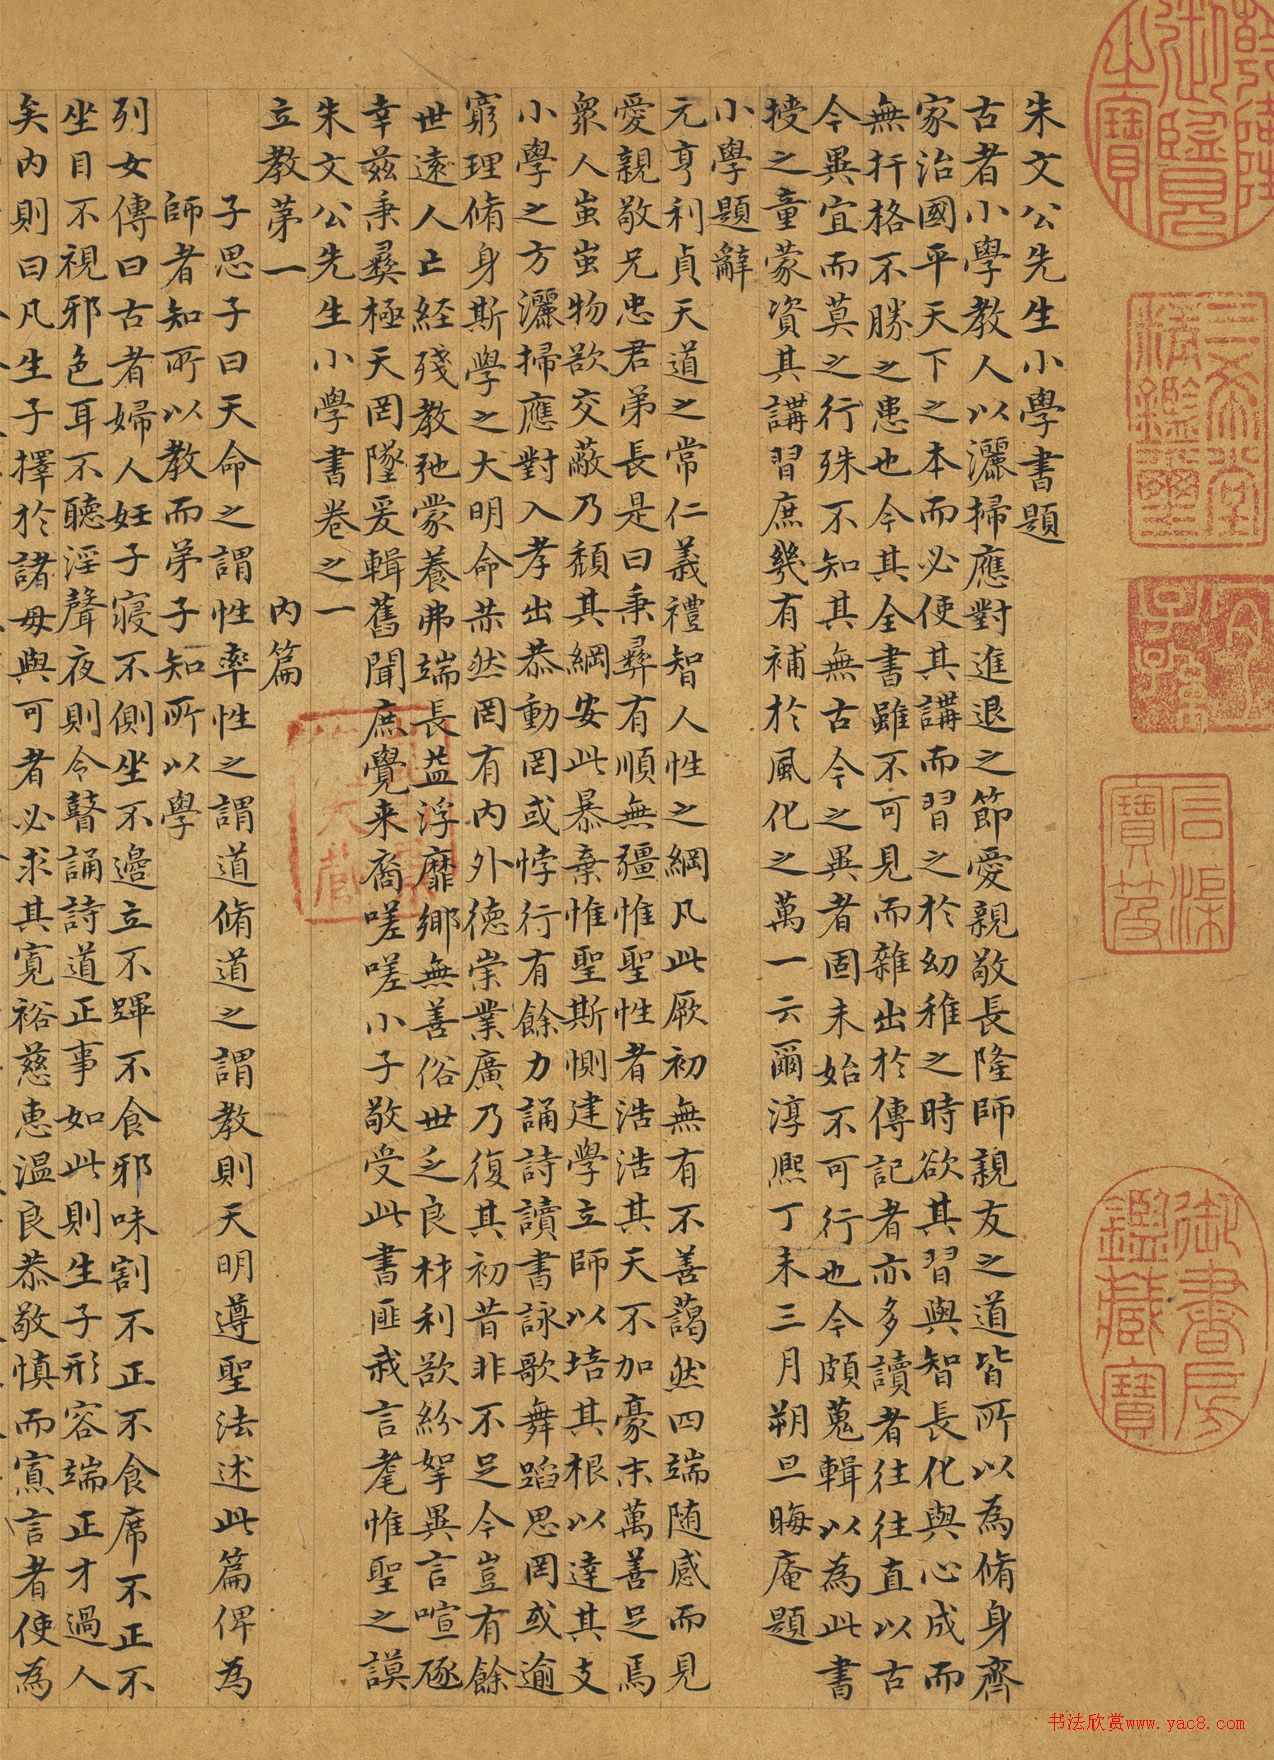 乾隆
御覽
之寶
三希堂
精鑑璽
宜
子孫
石渠
寶笈
御書房
鑑藏寶
朱文公先生小學書題
古者小學教人以灑掃應對進退之節愛親敬長隆師親友之道皆所以為脩身齊
家治國平天下之本而必使其講而習之於幼稚之時欲其習與智長化與心成而
無扞格不勝之患也今其全書雖不可見而雜出於傳記者亦多讀者往往直以古
今異宜而莫之行殊不知其無古今之異者固未始不可行也今頗蒐輯以為此書
授之童蒙資其講習庶幾有補於風化之萬一云爾淳熈丁未三月朔旦晦庵題
小學題辭
元亨利貞天道之常仁義禮智人性之綱凡此厥初無有不善藹然四端随感而見
愛親敬兄忠君弟長是曰秉彝有順無疆惟聖性者浩浩其天不加豪末萬善足焉
眾人蚩蚩物欲交蔽乃頹其綱安此暴棄惟聖斯惻建學立師以培其根以達其支
小學之方灑掃應對入孝出恭動罔或悖行有餘力誦詩讀書詠歌舞蹈思罔或逾
窮理脩身斯學之大明命赫然罔有內外德崇業廣乃復其初昔非不足今豈有餘
世遠人亡經殘教弛蒙養弗端長益浮靡鄉無善俗世乏良材利欲紛挐異言喧豗
幸茲秉彝極天罔墜爰輯舊聞庶覺来裔嗟嗟小子敬受此書匪我言耄惟聖之謨
朱文公先生小學書卷之一
立教第一　內篇
子思子曰天命之謂性率性之謂道脩道之謂教則天明遵聖法述此篇俾為
師者知所以教而弟子知所以學
列女傳曰古者婦人妊子寢不側坐不邊立不蹕不食邪味割不正不食席不正不
坐目不視邪色耳不聽淫聲夜則令瞽誦詩道正事如此則生子形容端正才過人
矣內則曰凡生子擇於諸母與可者必求其寬裕慈惠温良恭敬慎而寡言者使為
书法欣赏www.yac8.com